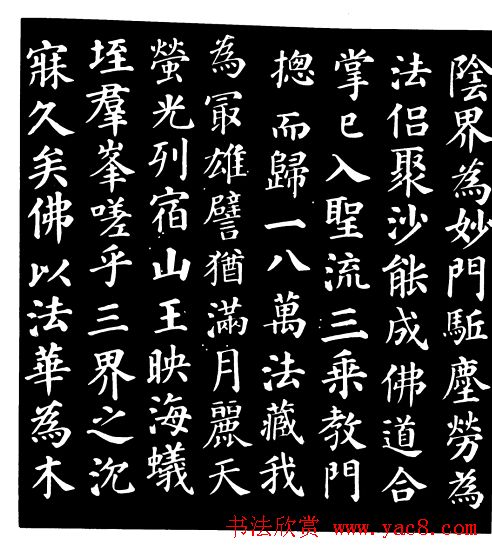 陰界為妙門駈塵勞為
法侶聚沙能成佛道合
掌已入聖流三乘教門
摠而歸一八萬法藏我
為冣雄譬猶滿月麗天
螢光列宿山王映海蟻
垤羣峯嗟乎三界之沉
寐久矣佛以法華為木
书法欣赏 www.yac8.com